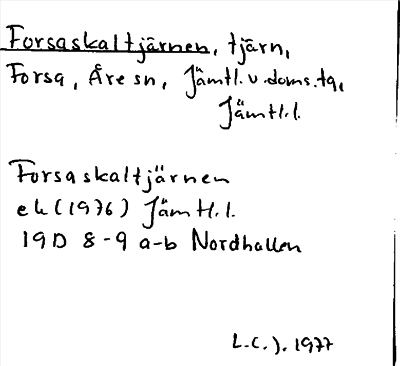 Forsaskaltjärnen, tjärn,
Forsa, Åre sn, Jämtl. v. doms. tg,
Jämtl. l.
Forsaskaltjärnen
ek (1976) Jämtl. l.
19D 8-9 a-b Nordhallen
L.C.J. 1977